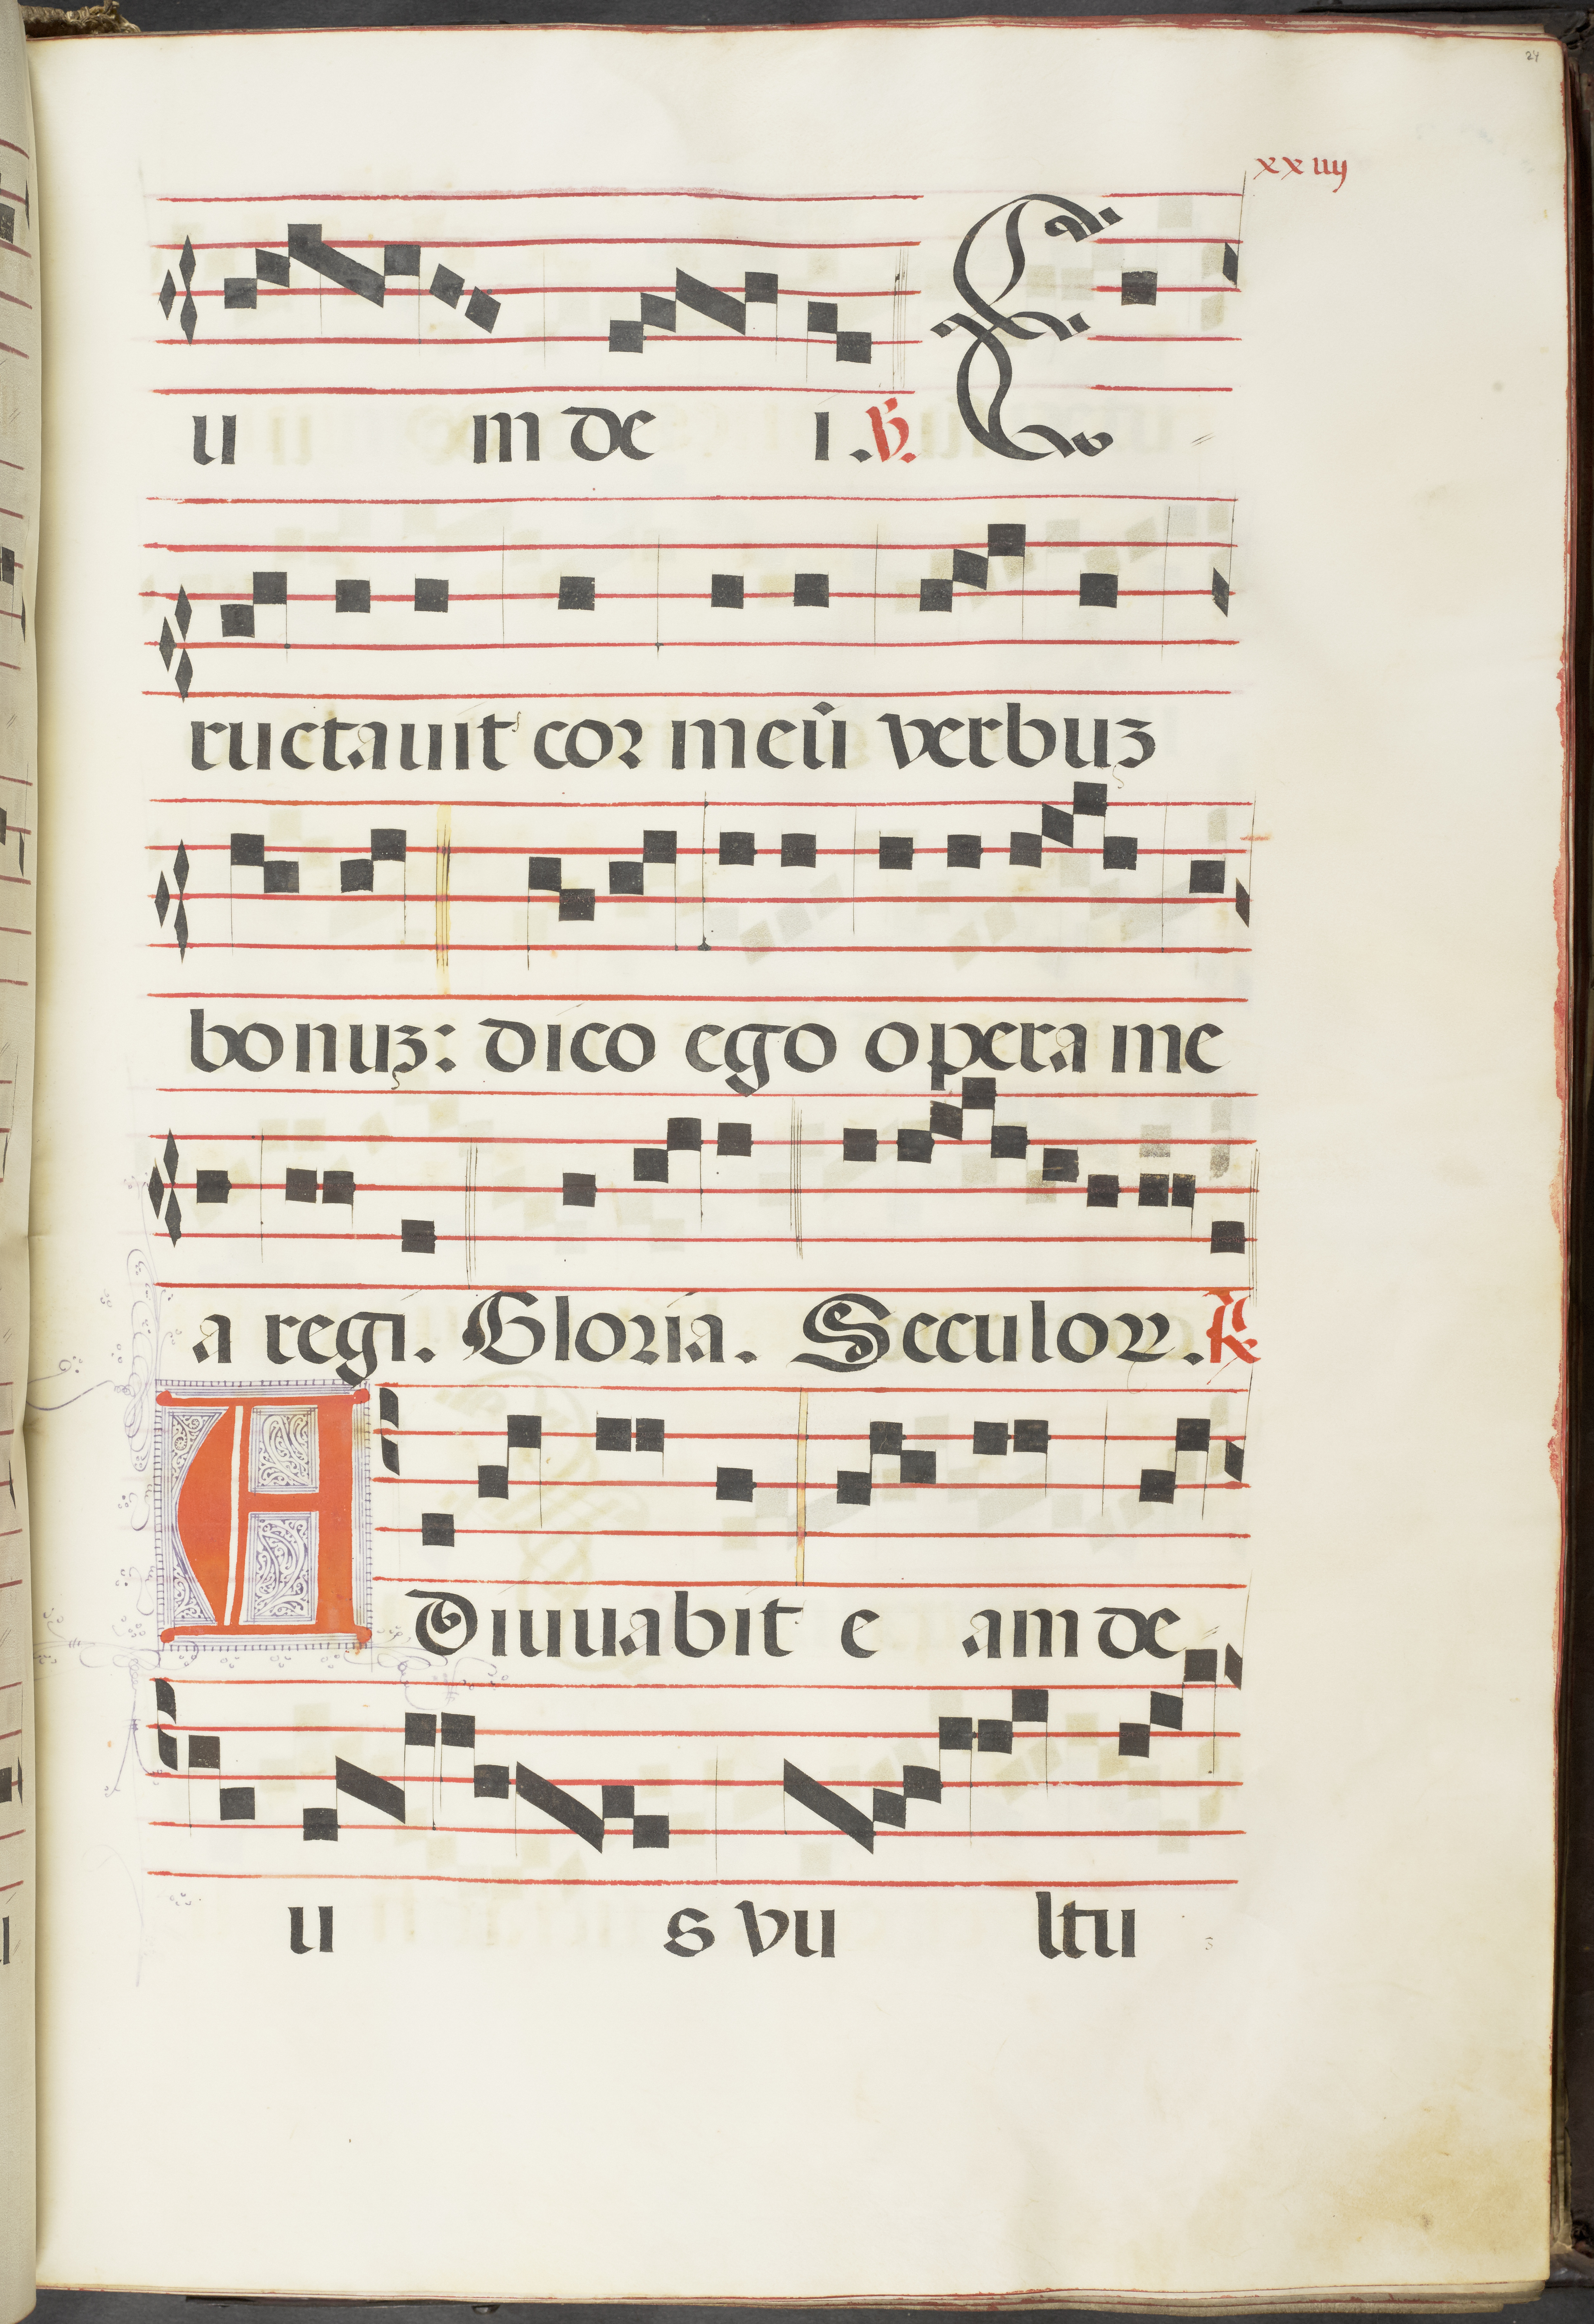 24
xxiiij
u m de i. ℣. E
ructauit cor meũ verbuʒ
bonuʒ: dico ego opera me
a regi. Gloria. Seculoꝝ. ℟
ADiuuabit e am de
u s vu ltu